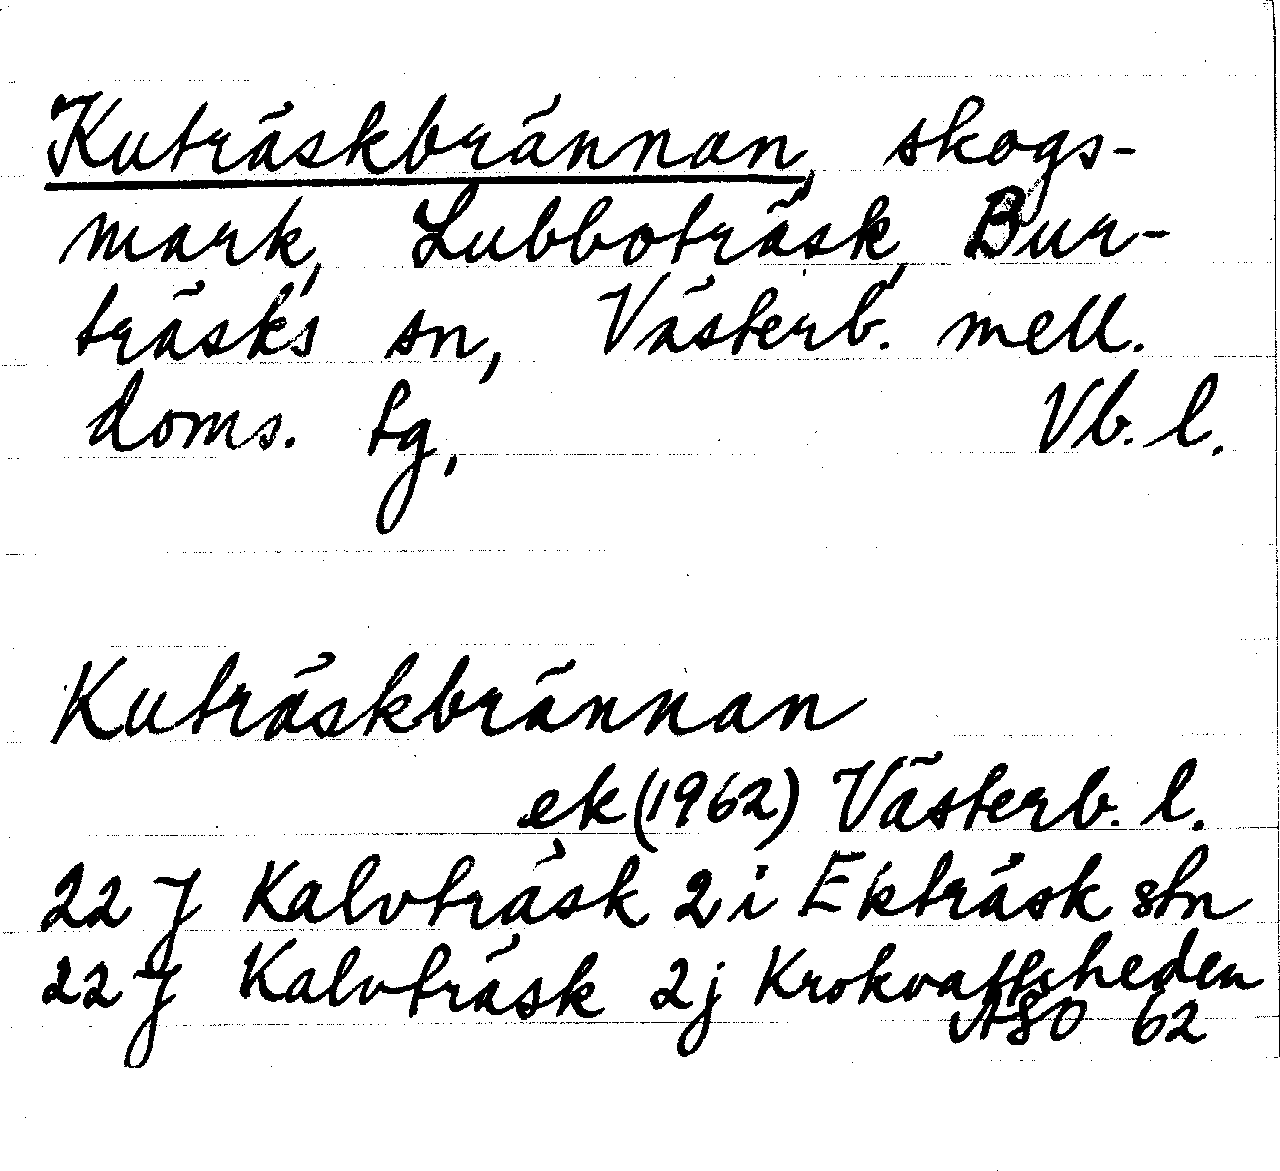 Kuträskbrännan, skogs-
mark, Lubboträsk, Bur-
träsks sn, Västerb. mell.
doms. tg, Vb. l.
Kuträskbrännan
ek (1962) Västerb. l.
22 J Kalvträsk 2 i Ekträsk stn
22 J Kalvträsk 2j Krokvattsheden
ASO 62